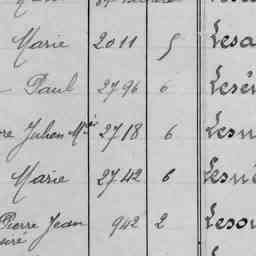 Marie 2011 5 Lesa
Paul 2796 6 Lesé
re Julien 2718 6 Lesu
Marie 2742 6 Lesu
Pierre Jean 942 2 Lesou